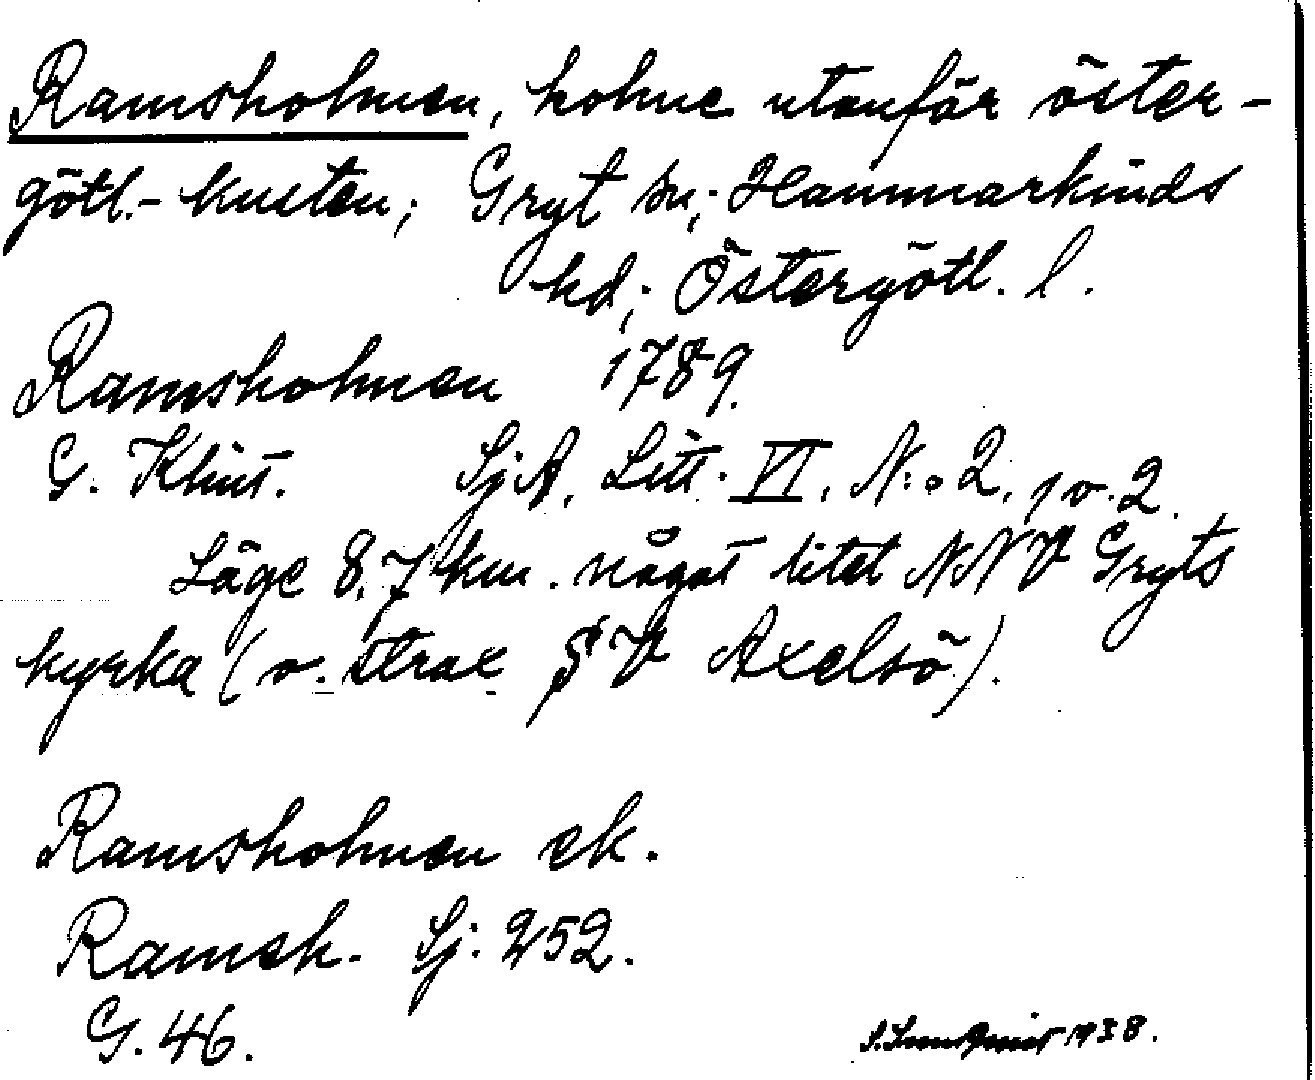 Ramsholmen, holme utanför öster-
götl.- kusten; Gryt sn; Hammarkinds
hd; Östergötl. l.
Ramsholmen 1789.
G. Klint. SjA, Litt. VI, N:o 2, 1 o. 2.
Läge 8,7 km. något litet NNV Gryts
kyrka (o. strax SV Axelsö).
Ramsholmen ek.
Ramsh. Sj. 252.
G. 46.
1938.